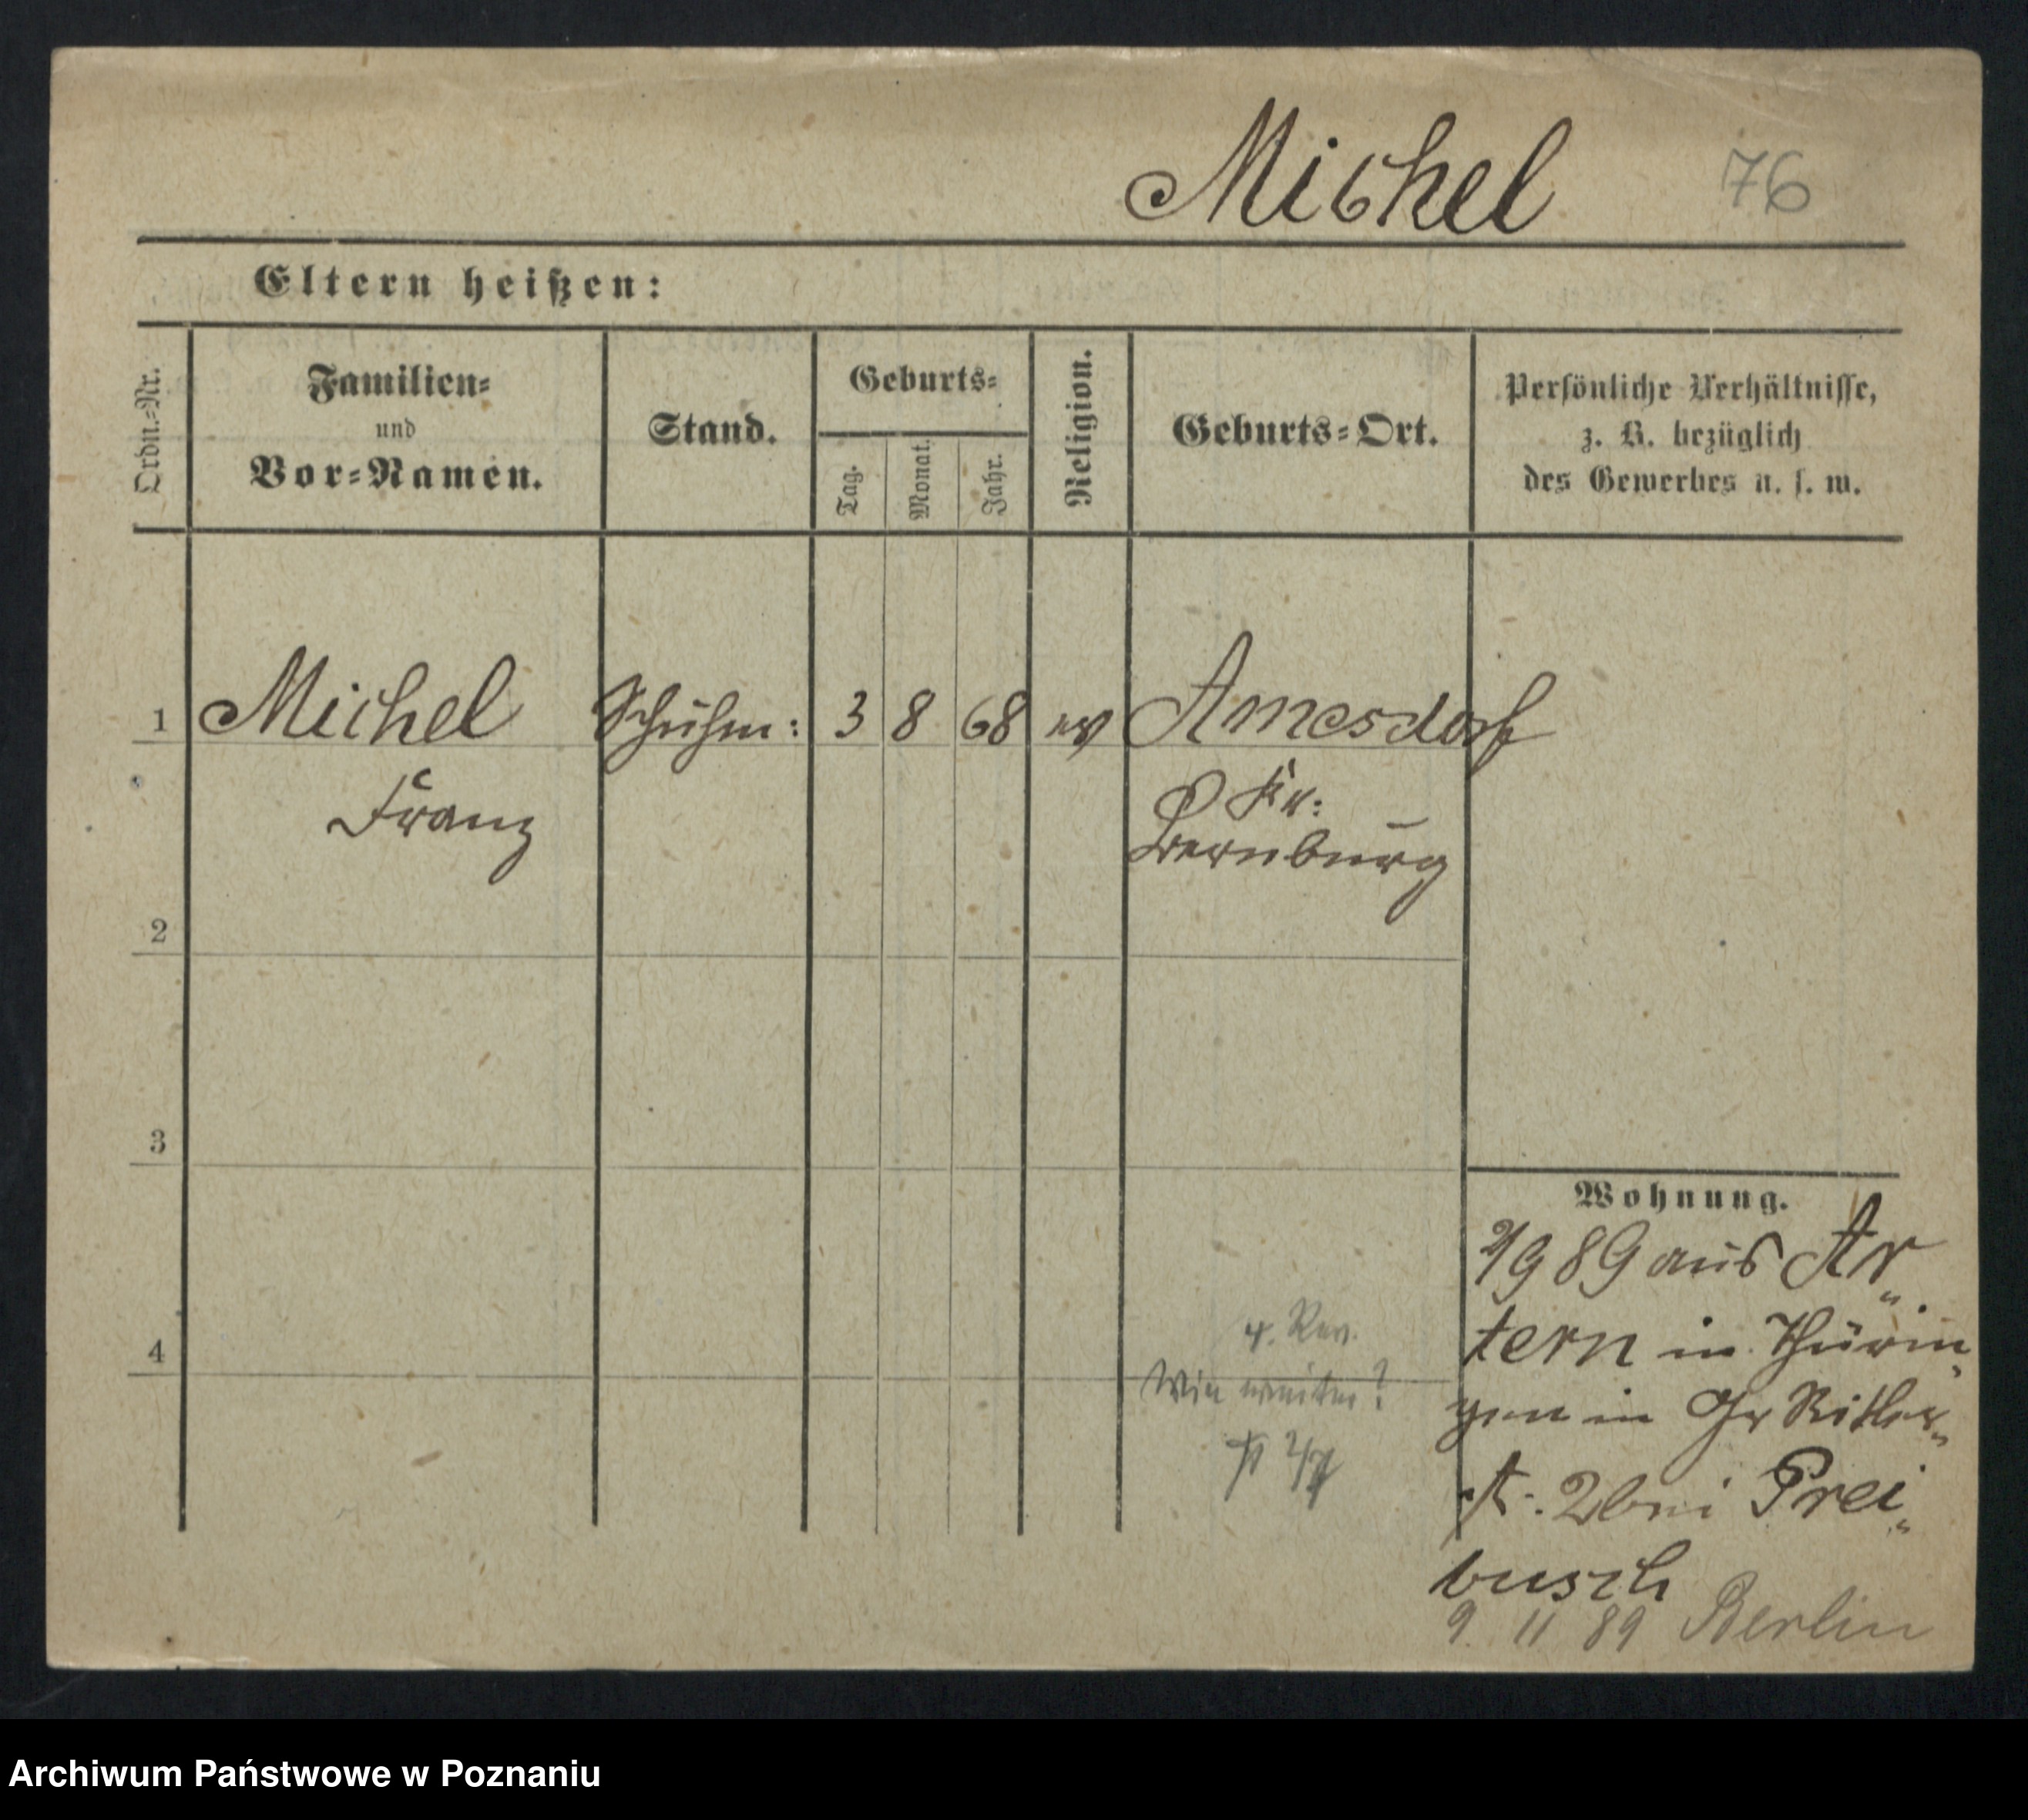 Michel 76
Eltern heißen:
Ordn.-Nr.
Familien-
und
Vor-Namen.
Stand.
Geburts-
Tag.
Monat.
Jahr.
Religion.
Geburts-Ort.
Persönliche Verhältnisse,
z. B. bezüglich
des Gewerbes u. s. w.
1 Michel Schuhm: 3 8 68 ev Amesdorf
Franz Kr:
Bernburg
2
3
4
Wohnung.
2/9 89 aus Ar„
tern in Thürin„
gen in Gr Ritter„
st. 2 bei Prei„
busch
9. 11 89 Berlin
4. Rev.
?
Archiwum Państwowe w Poznaniu